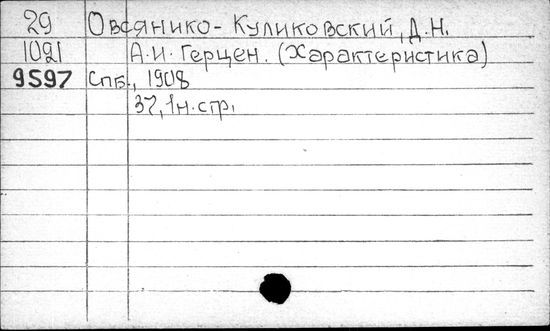 29 Овсянико-Куликовский, Д.Н.
1021 А.И. Герцен. (Характеристика)
9597 Спб., 1908
37, 1н.стр.